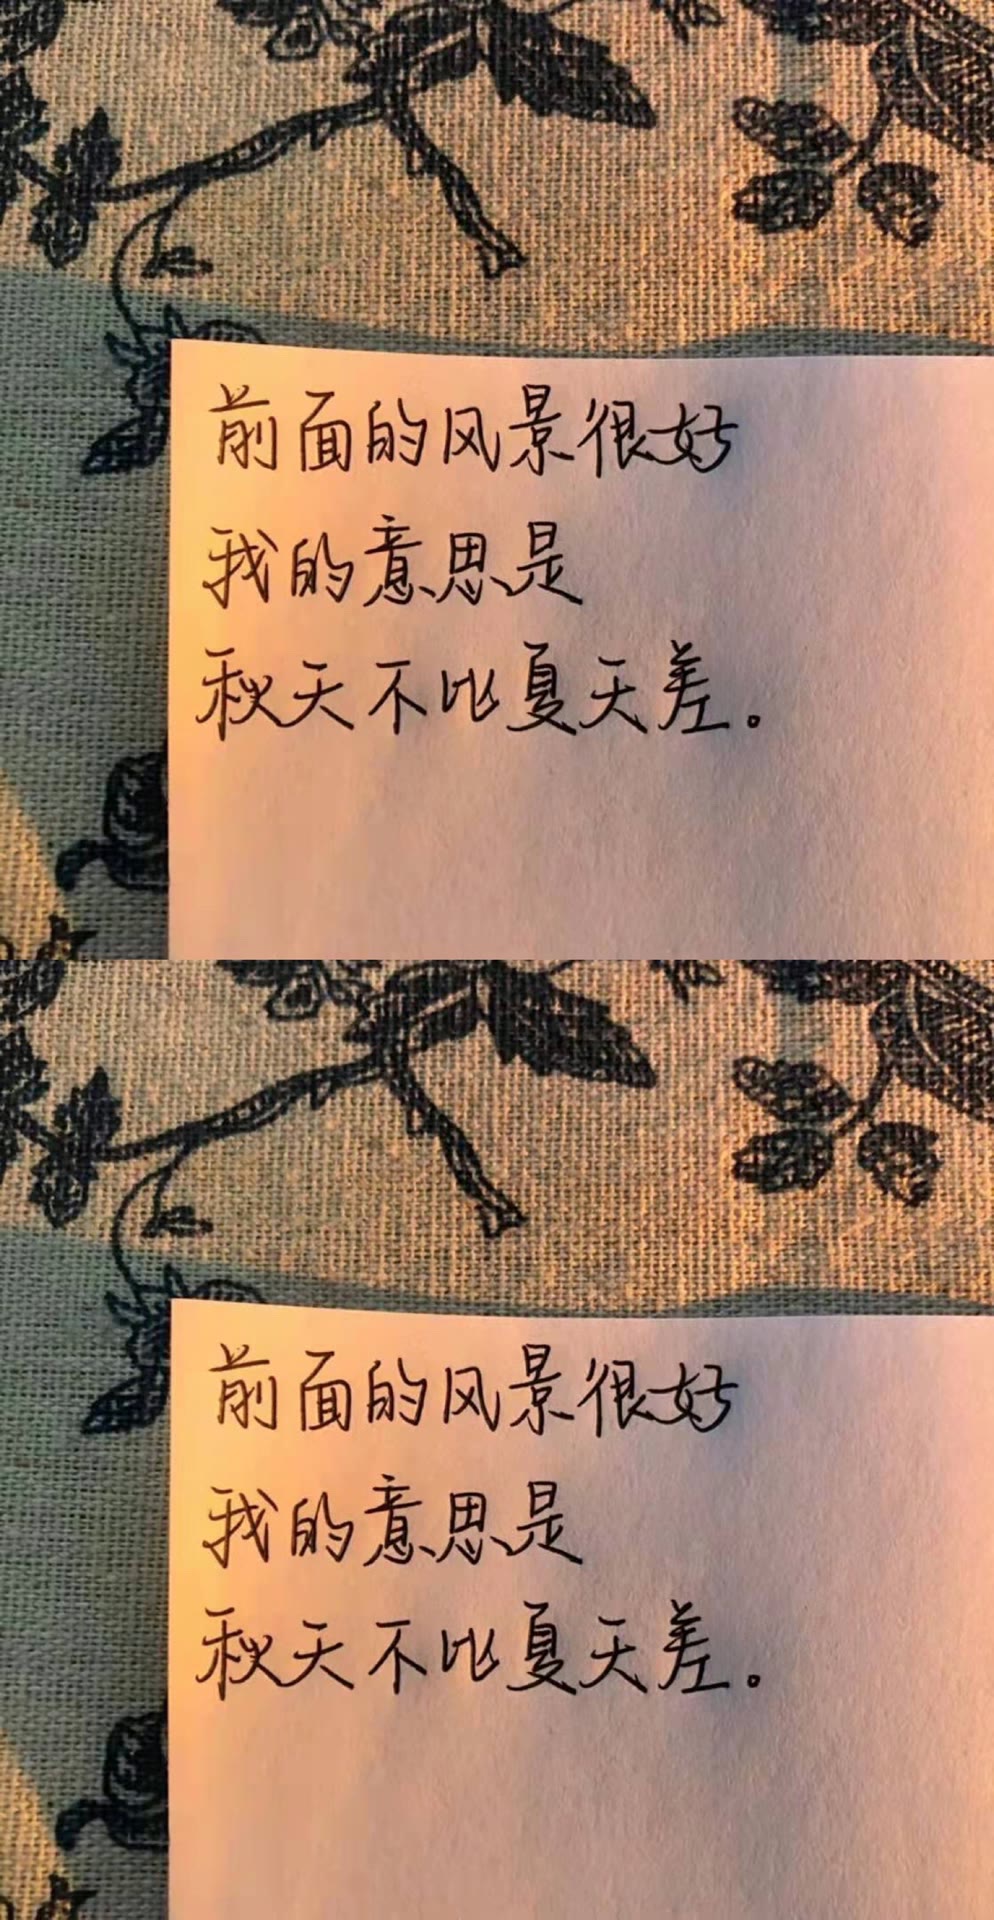 前面的风景很好
我的意思是
秋天不比夏天差。
前面的风景很好
我的意思是
秋天不比夏天差。